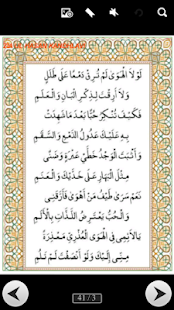 لَوْلَا الْهَوَى لَمْ تُرِقْ دَمْعًا عَلَى طَلَلٍ
وَلَا أَرِقْتَ لِذِكْرِ الْبَانِ وَالْعَلَمِ
فَكَيْفَ تُنْكِرُ حُبًّا بَعْدَ مَا شَهِدَتْ
بِهِ عَلَيْكَ عُدُولُ الدَّمْعِ وَالسَّقَمِ
وَأَثْبَتَ الْوَجْدُ خَطَّيْ عَبْرَةٍ وَضَنًى
مِثْلَ الْبَهَارِ عَلَى خَدَّيْكَ وَالْعَنَمِ
نَعَمْ سَرَى طَيْفُ مَنْ أَهْوَى فَأَرَّقَنِي
وَالْحُبُّ يَعْتَرِضُ اللَّذَّاتِ بِالْأَلَمِ
يَا لَائِمِي فِي الْهَوَى الْعُذْرِيِّ مَعْذِرَةً
مِنِّي إِلَيْكَ وَلَوْ أَنْصَفْتَ لَمْ تَلُمِ
41 / 3